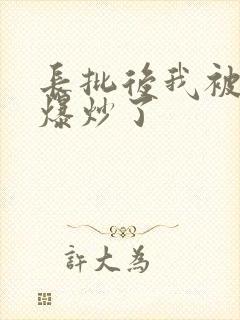 長批後我被
爆炒了
許大為